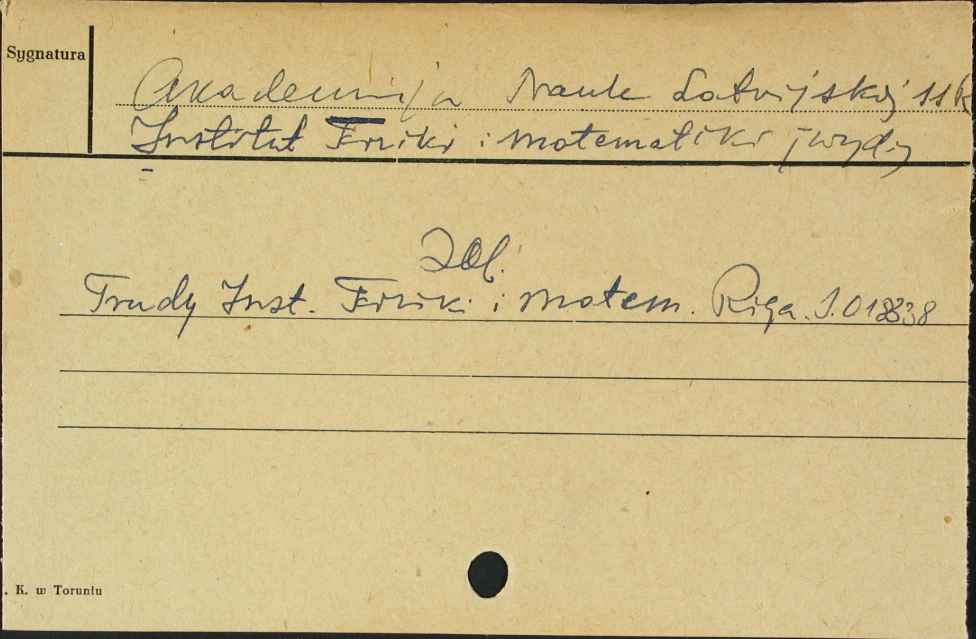 Sygnatura
Akademija Nauk Latvijskoj SSR
Institut Fiziki i Matematiki (wyd.)
Zob.
Trudy Inst. Fiziki i Matem. Riga. S. 01838
. K. w Toruniu